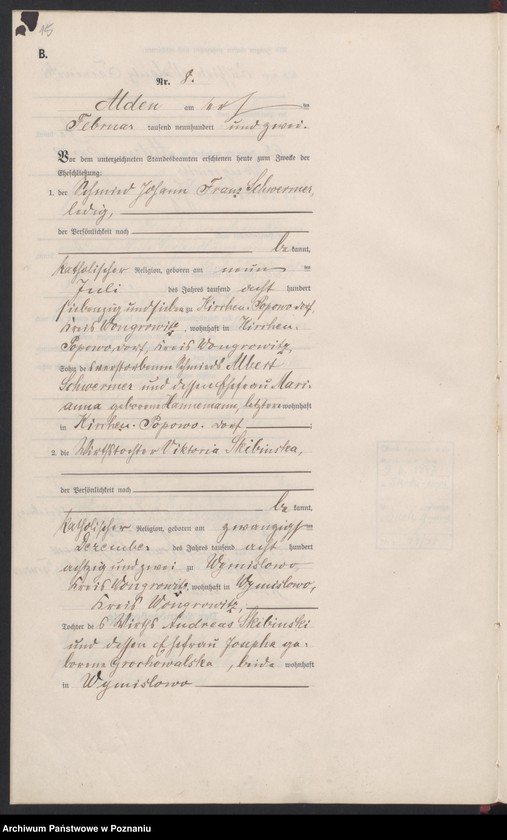 15
B.
Nr. 8.
Alden am ten
Februar tausend neunhundert und zwei.
Vor dem unterzeichneten Standesbeamten erschienen heute zum Zwecke der
Eheschließung:
1. der Schmied Johann Franz Schwermer,
ledig,
der Persönlichkeit nach
be kannt,
katholischer Religion, geboren am neun ten
Juli des Jahres tausend acht hundert
siebenzig und sieben zu Kirchen-Popowo Dorf,
Kreis Wongrowitz, wohnhaft in Kirchen-
Popowo, Dorf, Kreis Wongrowitz,
Sohn des verstorbenen Schmieds Albert
Schwermer und dessen Ehefrau Mari-
anna geborene Hannemann, letztere wohnhaft
in Kirchen-Popowo-Dorf
2. die Wirthstochter Viktoria Skibinska,
der Persönlichkeit nach
be kannt,
katholischer Religion, geboren am zwanzigsten
Dezember des Jahres tausend acht hundert
achtzig und zwei zu Wymislowo,
Kreis Wongrowitz, wohnhaft in Wymislowo,
Kreis Wongrowitz,
Tochter des Wirths Andreas Skibinski
und dessen Ehefrau Josepha ge-
borene Grochowalska, beide wohnhaft
in Wymislowo
Archiwum Państwowe w Poznaniu